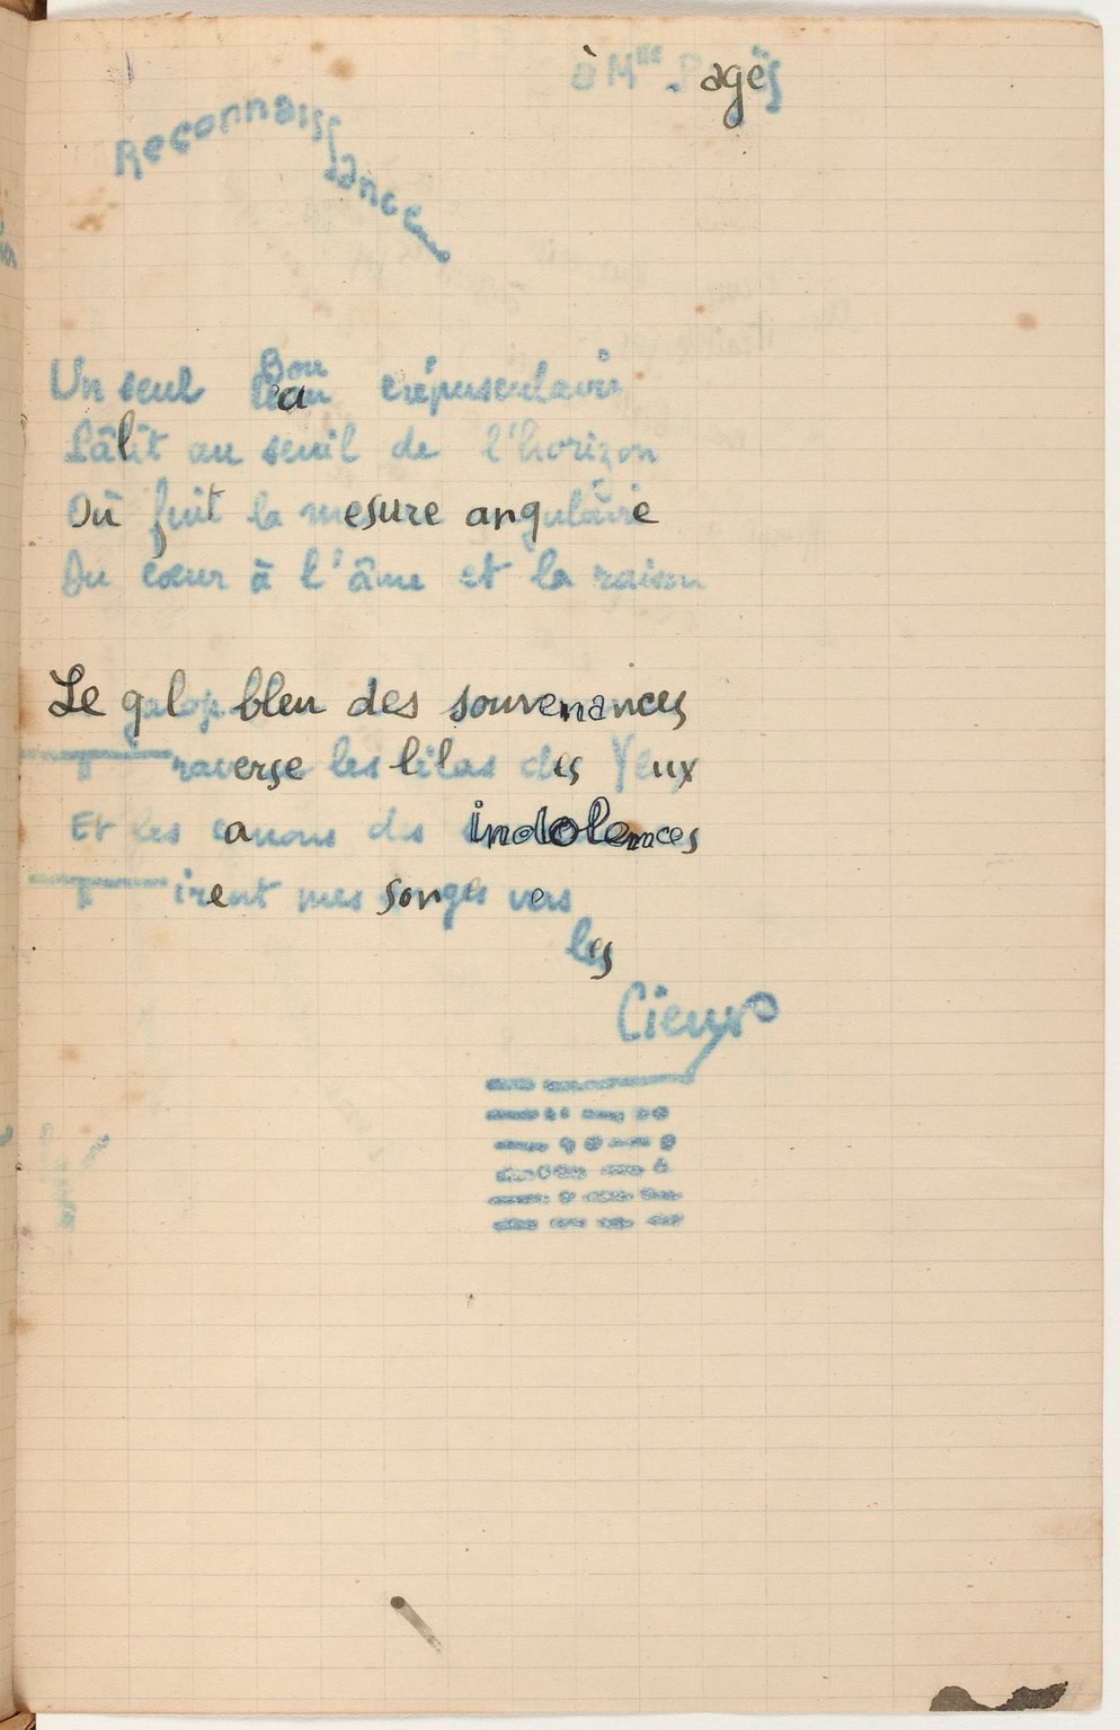 à Mlle. Pagès
Reconnaissance
Un seul Bouleau crépusculaire
Pâlit au seuil de l'horizon
Où fuit la mesure angulaire
Du cœur à l'âme et la raison
Le galop bleu des souvenances
Traverse les lilas des Yeux
Et les canons des indolences
Tirent mes songes vers
les
Cieux